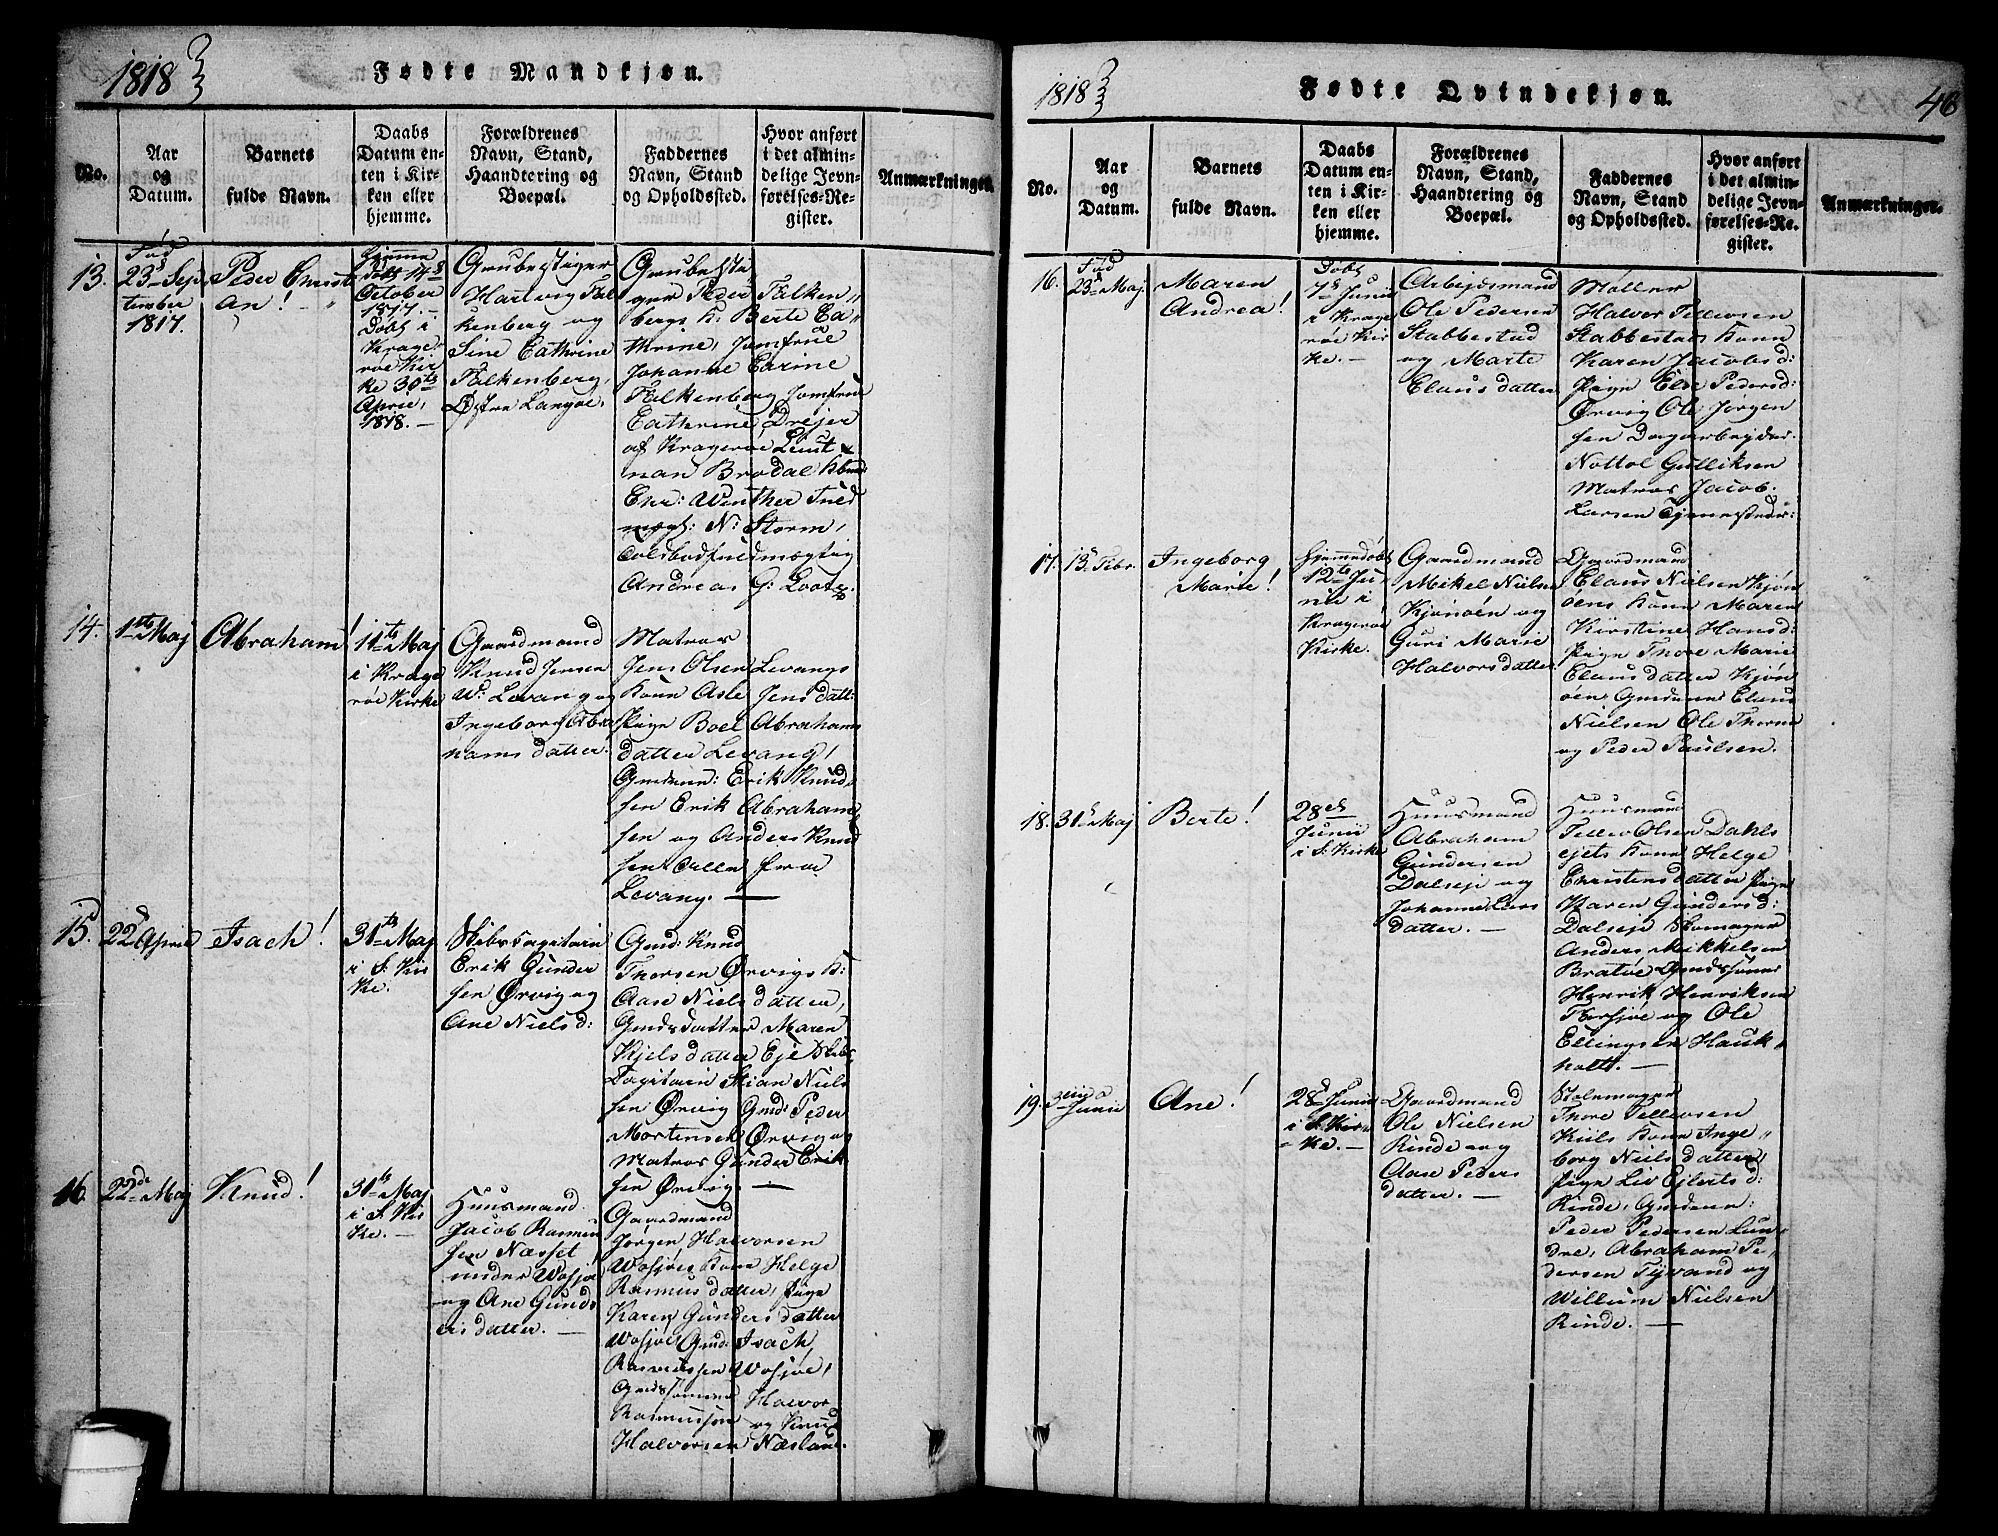 1818
Fødte Mandkjøn.
No.
Aar
og
Datum.
Barnets
fulde Navn.
Daabs
Datum en-
ten i Kir-
ken eller
hjemme.
Forældrenes
Navn, Stand,
Haandtering og
Boepæl.
Faddernes
Navn, Stand
og Opholdssted.
Hvor anført
i det almin-
delige Jevn-
førelses-Re-
gister.
Anmærkninger.
13.
Fød
23d Sep
tember
1817.
Peder Christi
an!
Hjemme
døbt 14d
October
1817.
Døbt i
Krage
røe Kir
ke 30te
April,
1818.
Grubestiger
Hartvig Fal
kenberg og
Sine Cathrine
Falkenberg,
Østre Langøe.
Grubesti
ger Peder Falken,,
bergs K: Berte Ca,,
thrine, Jomfrue
Johanne Carine
Falkenberg, Jomfrue
Cathrine Drejer
af Kragerøe Leut
nan Brodal
Chr: Winther Fuld
mægt: N: Storm,
Toldbodfuldmægtig
Andreas
14.
1te Maj
Abraham!
11te Maj
i Krage
røe Kirke
Gaardmand
Knud Jensen
W: Levang og
Ingeborg Abra
hams datter.
Matros
Jens Olsen Levangs
Konn Asle Jens datt:
Pige Boel Abrahams
datter Levang,
Gmdenn: Erik Knud
sen Erik Abraham
sen og Anders Knud
sen alle fra
Levang.
15.
22d April
Isach!
31te Maj
i S: Kir
ke.
Skibscapitain
Erik Gunder
sen Ørvig og
Ane Niels d:
Gmd: Knud
Thorsen Ørvigs K:
Aase Niels datter,
Gmdsdatter Maren
Kjels datter Eje Skibs
Capitain Stian Niels
sen Ørvig Gmd: Peder
Mortensen Ørvig og
Matros Gunder Erik
sen Ørvig.
16.
22de Maj
Knud!
31te Maj
i S. Kir
ke.
Huusmand
Jacob Rasmus
sen Næsset
under Wosjøe
og Ane Gund
ersdatter.
Gaardmand
Jørgen Halvorsen
Wosjøes Konn Helge
Rasmus datter, Pige
Karen Gunders datter
Wosjøe Gmd: Isach
Rasmussen Wosjøe,
Gmdssønner
Rasmussøn Halvor
og Knud
Halvorsen Næsland.
1818
Fødte Qvindekjøn.
48
No.
Aar
og
Datum.
Barnets
fulde Navn.
Daabs
Datum en-
ten i Kir-
ken eller
hjemme.
Forældrenes
Navn, Stand,
Haandtering og
Boepæl.
Faddernes
Navn, Stand
og Opholdssted.
Hvor anført
i det almin-
delige Jevn-
førelses-Re-
gister.
Anmærkninger.
16.
Fød
23d Maj
Maren
Andrea!
Døbt
7d Junii
i Krage
røe Kir
ke.
Arbejdsmand
Ole Pedersen
Stabbestad
og Marte
Claus datter
Møller
Halvor Tellevsen
Stabbestads Konn
Karen Jacobs d:
Pige Else Peders d:
Ørvig Ole Jørgen
sen Dagarbejder
Gulliksen
Matros Jacob
Larsen
17.
13. Febr.
Ingeborg
Marie!
Hjemmedøbt
12te Ju
nii i
Kragerøe
Kirke.
Gaardmand
Mikel Nielsen
Kjønøen og
Guri Marie
Halvors datter
Gaardmand
Claus Nielsen Kjøn
øens Konn Maren
Kirstine Hans d:
Pige Thore Marie
Claus datter Kjøn
øen Gmdenn Claus
Nielsen Ole
og Peder Paulsen.
18.
31d Maj
Berte!
28de
Junii
i S: Kirke
Huusmand
Abraham
Gundersen
Dalseje og
Johanne Lars
datter.
Huusmand
Tellev Olsen Dahls
ejets Konn Helge
Christens datter Pige
Karen Gunders d:
Dalseje Skomager
Anders Mikkelsen
Bratøe Gmdssønner
Henrik Henriksen
Farsjøe og Ole
Ellingsen Hauk,,
holt.
19.
3die
Junii
Ane!
28d Junii
i S. Kir,,
ke.
Gaardmand
Ole Nielsen
Rinde og
Aase Peders
datter.
Stolemager
Thore Tellevsen
Kiils Konn Inge,,
borg Niels datter,
Pige Liv Ejlerts d:
Rinde, Gmdenn:
Peder Pedersen Lun,,
dre, Abraham Pe,,
dersen Tyvand og
Willum Nielsen
Rinde.